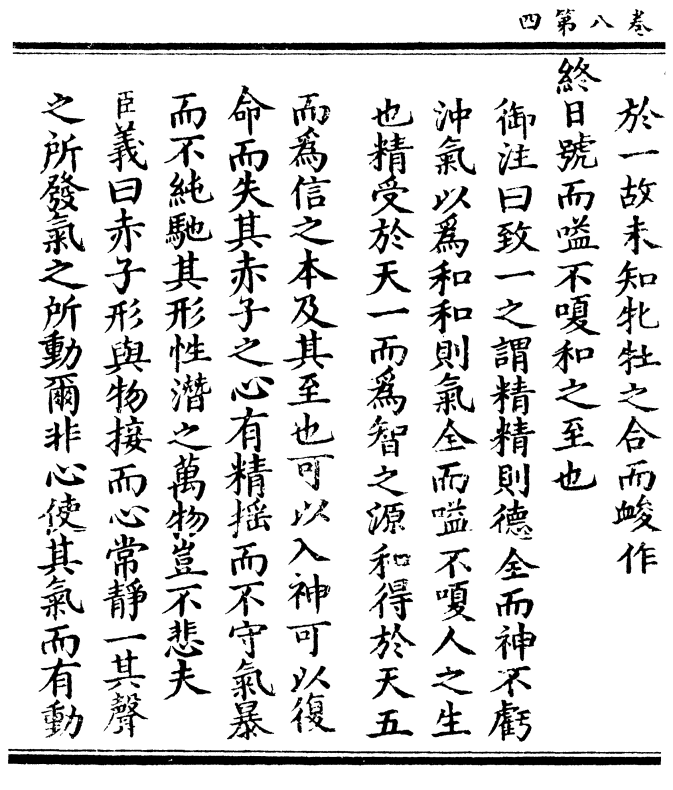 卷八第四
於一故未知牝牡之合而峻作
終日號而嗌不嗄和之至也
御注曰致一之謂精精則德全而神不虧
沖氣以爲和和則氣全而嗌不嗄人之生
也精受於天一而爲智之源和得於天五
而爲信之本及其至也可以入神可以復
命而失其赤子之心有精揺而不守氣暴
而不純馳其形性潛之萬物豈不悲夫
臣義曰赤子形與物接而心常靜一其聲
之所發氣之所動爾非心使其氣而有動